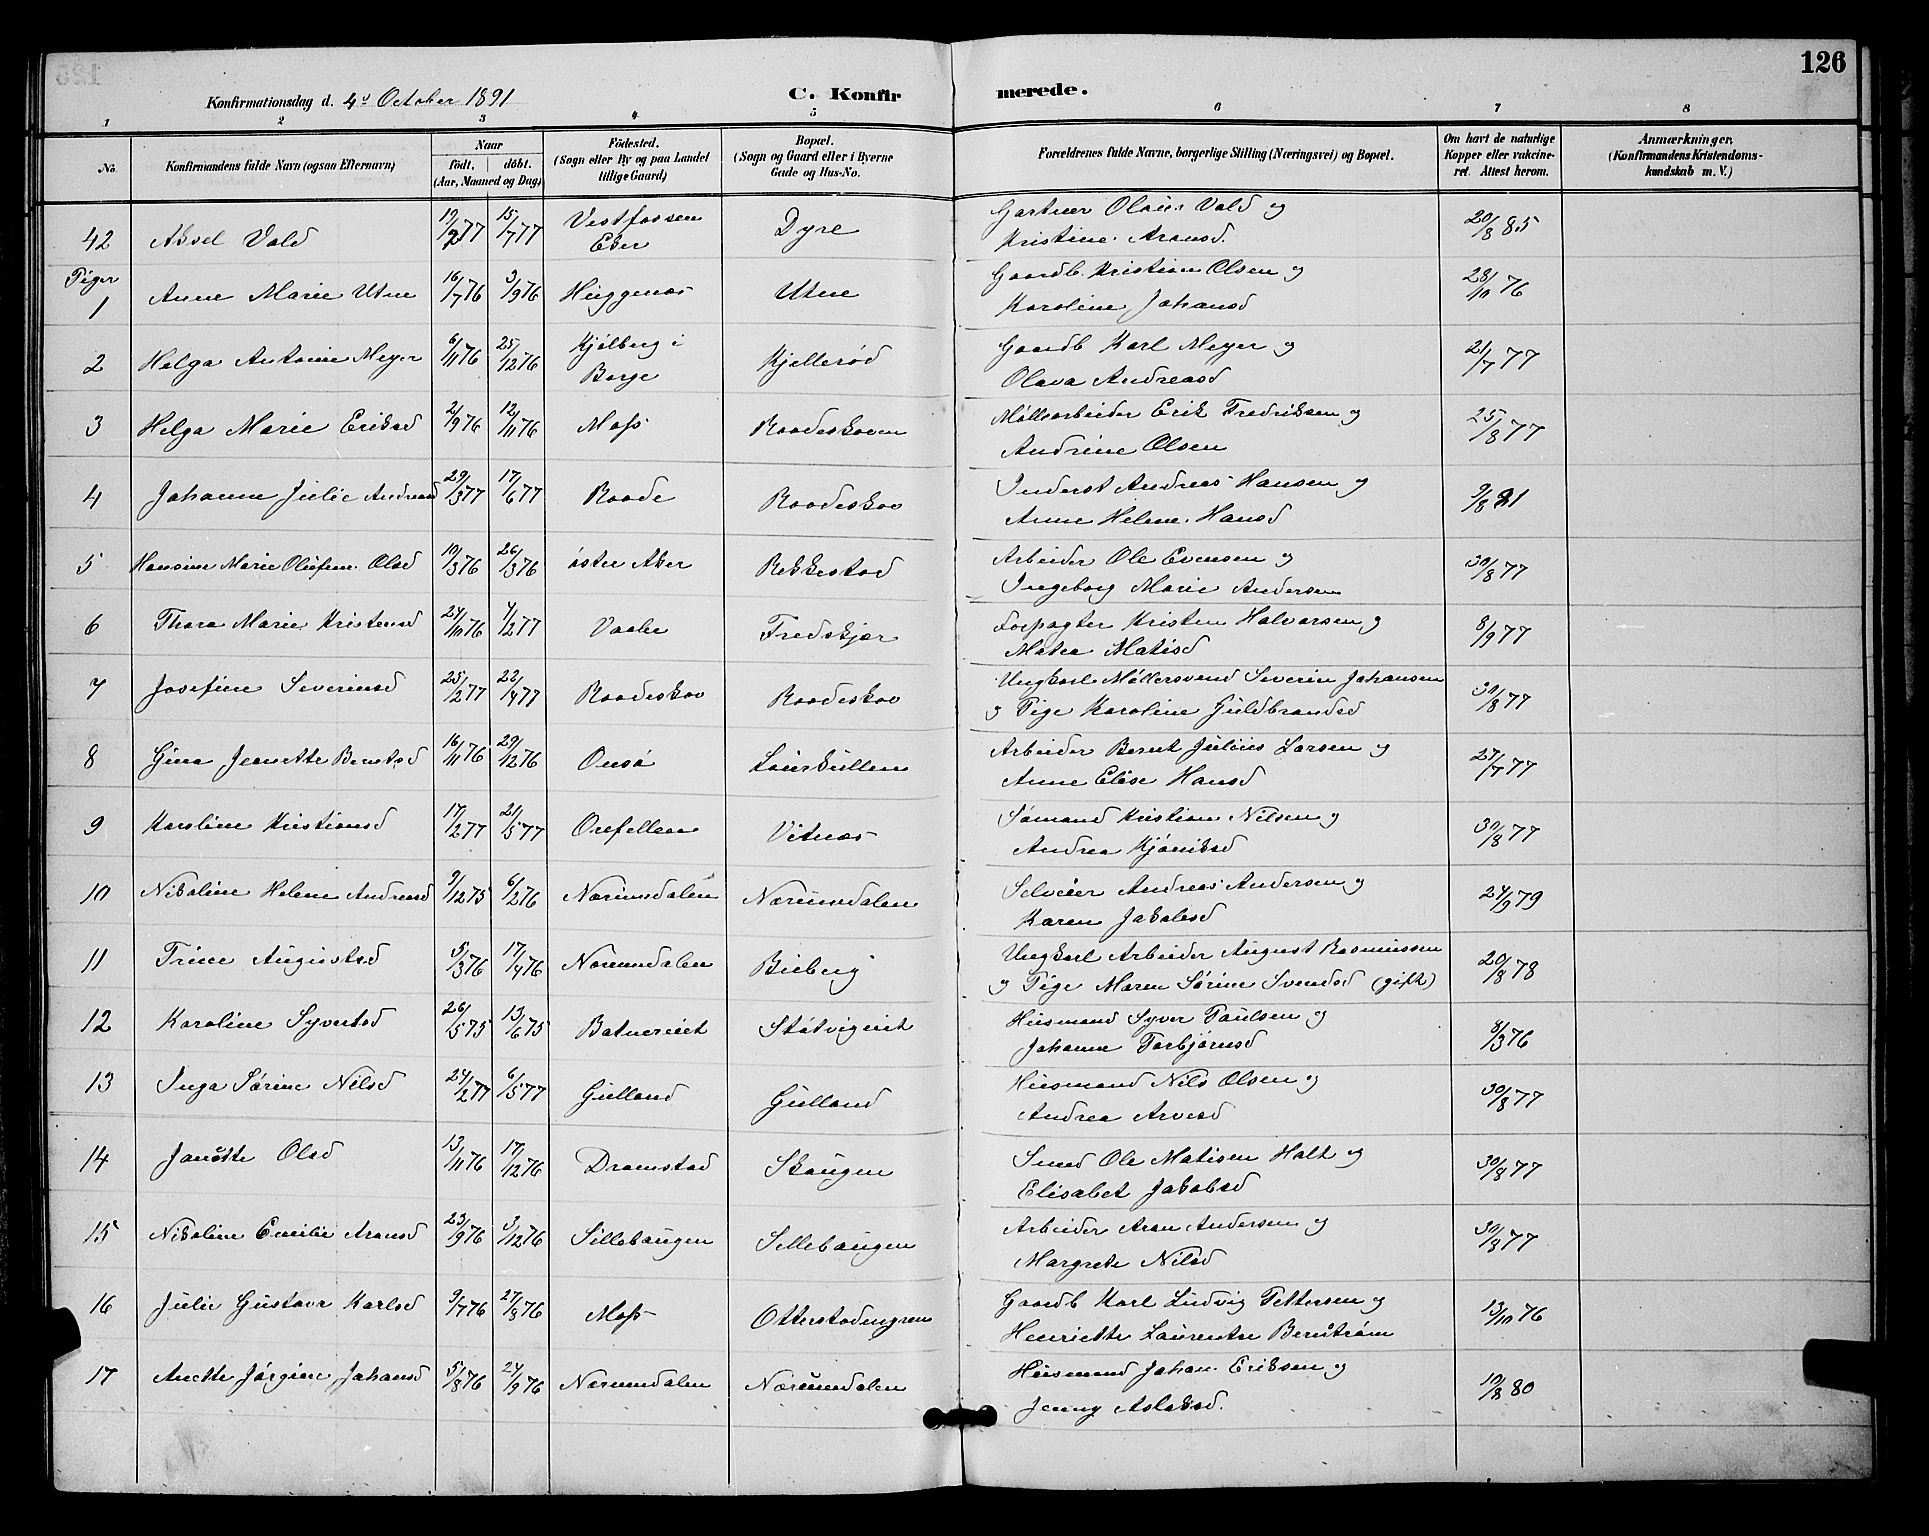 126
Konfirmationsdag d. 4de October 1891 C. Konfirmerede.
1 2 3 4 5 6 7 8
No. Konfirmandens fulde Navn (ogsaa Efternavn) Naar født. døbt. (Aar, Maaned og Dag) Fødested. (Sogn eller By og paa Landet tillige Gaard) Bopæl. (Sogn og Gaard eller i Byerne Gade og Hus-No. Forældrenes fulde Navne, borgerlige Stilling (Næringsvei) og Bopæl. Om havt de naturlige Kopper eller vakcineret. Attest herom. Anmærkninger. (Konfirmandens Kristendomskundskab m. V.)
42 Aksel Vold 19/2 77 15/7 77 Vestfossen Eker Dyre Gartner Olaus Vold og Kristine Aronsd. 20/8 85
Piger
1 Anne Marie Utne 16/7 76 3/9 76 Huggenæs Utne Gaardb. Kristian Olsen og Karoline Johansd 28/10 76
2 Helga Antonie Meyer 6/11 76 25/12 76 Kjølberg i Borge Kjellerød Gaardb Karl Meyer og Olava Andreasd 21/7 77
3 Helga Marie Eriksd 2/9 76 12/11 76 Moss Raadeskoven Møllearbeider Erik Fredriksen og Andrine Olsen 25/8 77
4 Johanne Julie Andreasd 29/3 77 17/6 77 Raade Raadeskov Inderst Andreas Hansen og Anne Helene Hansd 9/8 81
5 Hansine Marie Olufine Olsd 10/3 76 26/3 76 Øster Aker Rekkestad Arbeider Ole Evensen og Ingeborg Marie Andersen 30/8 77
6 Thora Marie Kristensd 24/10 76 4/2 77 Vaaler Fredskjær Forpagter Kristen Halvorsen og Matea Matisd 8/9 77
7 Josefine Severinsd 25/2 77 22/4 77 Raadeskov Raadeskov Ungkarl Møllersvend Severin Johansen og Pige Karoline Guldbrandsd 30/8 77
8 Gina Jeanette Berntsd 16/11 76 29/12 76 Onsø Laurkullen Arbeider Bernt Julius Larsen og Anne Elise Hansd 27/7 77
9 Karoline Kristiansd 17/2 77 21/5 77 Orefellene Vitnæs Sømand Kristian Nilsen og Andrea Kjøniksd 30/8 77
10 Nikoline Helene Andreasd 9/12 75 6/2 76 Nærumsdalen Nærumsdalen Selveier Andreas Andersen og Karen Jakobsd 24/9 79
11 Trine Augustsd 5/3 76 17/4 76 Nærumsdalen Bieberg Ungkarl Arbeider August Rasmussen og Pige Maren Sørine Svendsd (gift) 20/8 78
12 Karoline Syvertsd 26/5 75 13/6 75 Batnereiet Støtvigeiet Husmand Syver Paulsen og Johanne Torbjørnsd 8/3 76
13 Inga Sørine Nilsd 24/2 77 6/5 77 Gulland Gulland Husmand Nils Olsen og Andrea Arvesd 30/8 77
14 Janette Olsd 13/11 76 17/12 76 Dramstad Skaugen Smed Ole Matisen Holt og Elisabet Jakobsd 30/8 77
15 Nikoline Emilie Aronsd 23/9 76 3/12 76 Sillebaugen Sillebaugen Arbeider Aron Andersen og Margrete Nilsd 30/8 77
16 Julie Gustava Karlsd 9/7 76 27/8 76 Moss Otterstadengren Gaardb Karl Ludvig Pettersen og Henriette Laurentse Bernstrøm 13/10 76
17 Anette Jørgine Johansd 5/8 76 24/9 76 Nærumsdalen Nærumsdalen Husmand Johan Eriksen og Jenny Aslaksd. 10/8 80